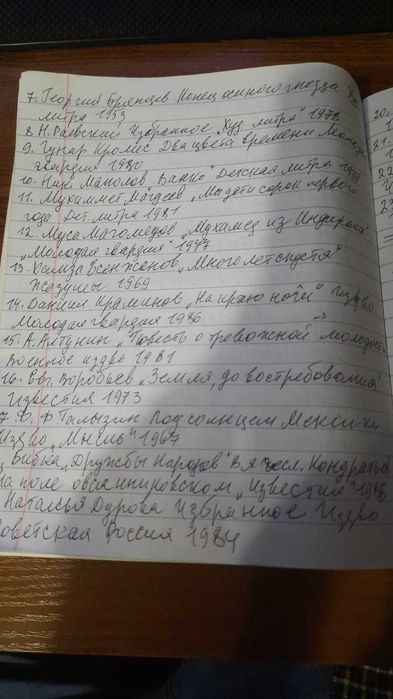 7. Георгий Брянцев Конец осиного гнезда Худ
литра 1953
8. Н. Раевский Избранное "Худ литра" 1978
9. Гунар Кролис Два цвета времени Молода
гвардия 1980
10. Ник. Манолов "Банко" Детская литра 1979
11. Мухаммет "Мы дети сорок первого
года" Дет. литра 1981
12. Муса Магомедов "Мухамед из
"Молодая гвардия" 1977
13. Хамза Есенжанов "Много лет спустя"
Жазушы 1969
14. Даниил Краминов "На краю ночи" Изд-во
Молодая гвардия 1986
15. А. Алтунин "Повесть о тревожной молодости
Военное изд-во 1981
16. Евг. Воробьев "Земля, до востребования"
Известия 1973
7. Ю. Ф. Галызин Под солнцем Мексики
Изд-во "Мысль" 1967
Бибка "Дружбы Народов" Вячесл. Кондратьев
На поле овсянниковском "Известия" 1988
Наталья Дурова Избранное Изд-во
Советская Россия 1984
20.
21.
22
23